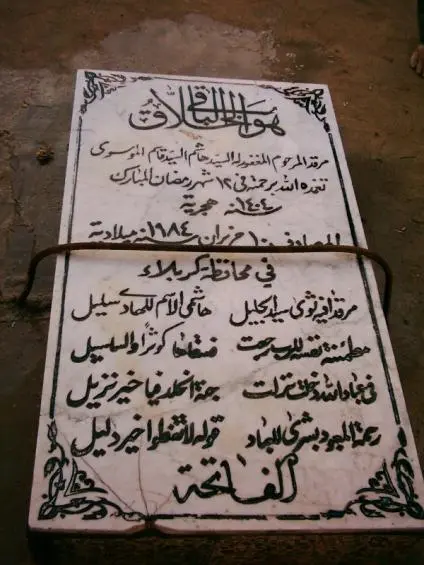 هو الخلاق الباقي
مرقد المرحوم المغفور له السيد هاشم السيد قاسم الموسوي
تغمده الله برحمته في ١٢ شهر رمضان المبارك
سنة ١٤٠٤ هجرية
المصادف ١٠ حزيران سنة ١٩٨٤ ميلادية
في محافظة كربلاء
مرقد فيه ثوى سيد الجليل هاشمي الاسم للهادي سليل
مطمئنة نفسه للرب رحت فسقاها كوثرا والسلسبيل
جنة الخلد فيا خير نزيل
رحمة المعبود بشرى للعباد قوله لا تقنطوا خير دليل
الفاتحة